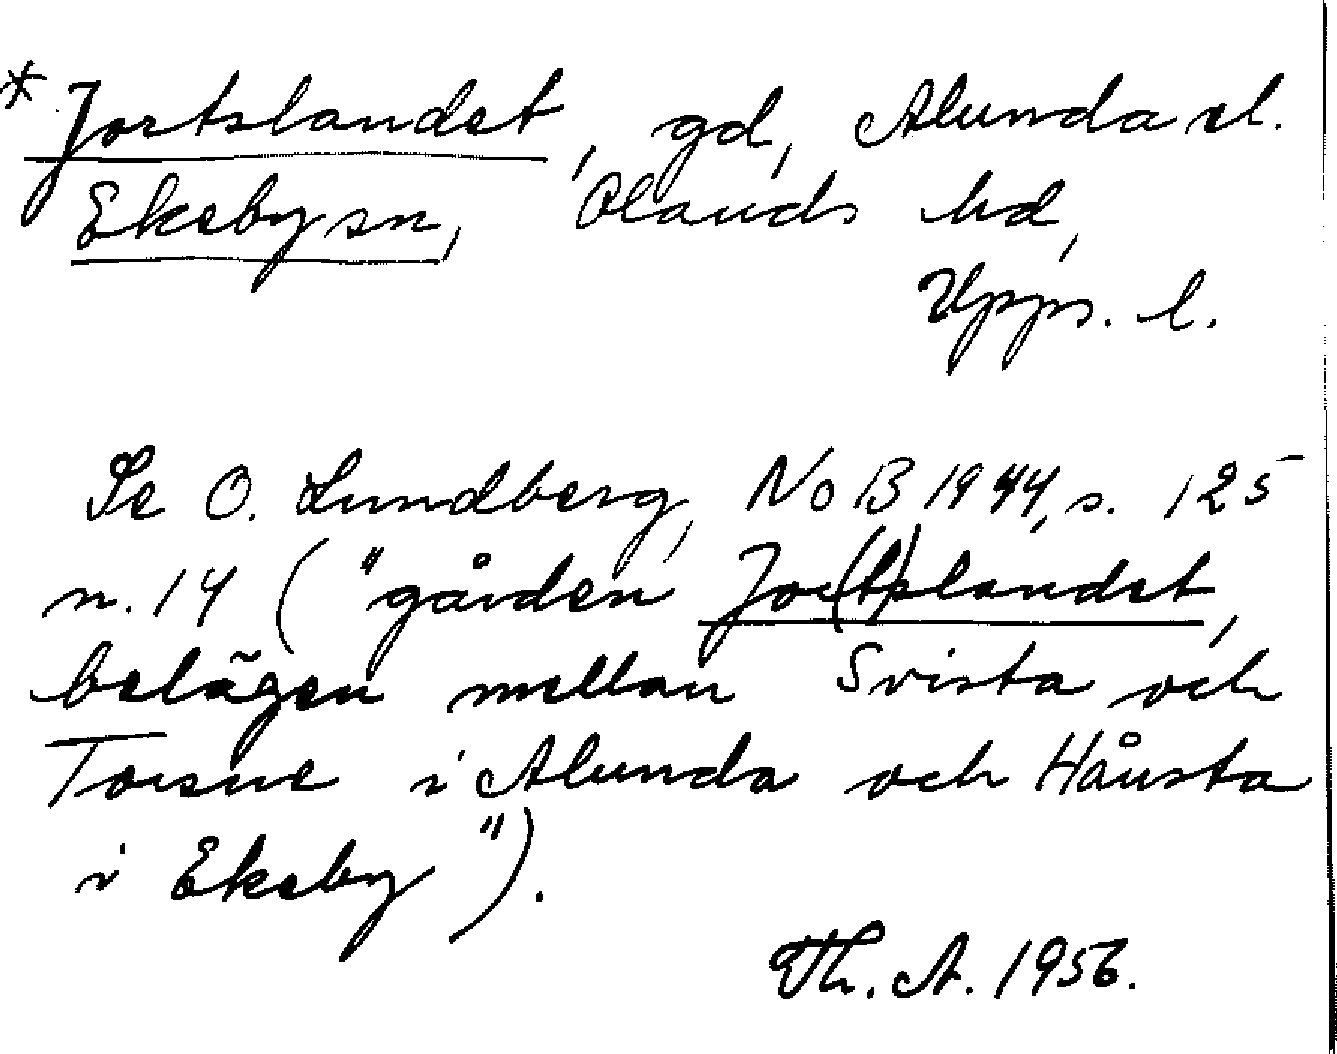 * Jortslandet, gd, Alunda el.
Ekeby sn, Olands hd,
Upps. l.
Se O. Lundberg, NoB 1944, s. 125
n. 14 ("gården Jor(t)slandet,
belägen mellan Svista och
Torsne i Alunda och Hånsta
i Ekeby").
Th. A. 1956.